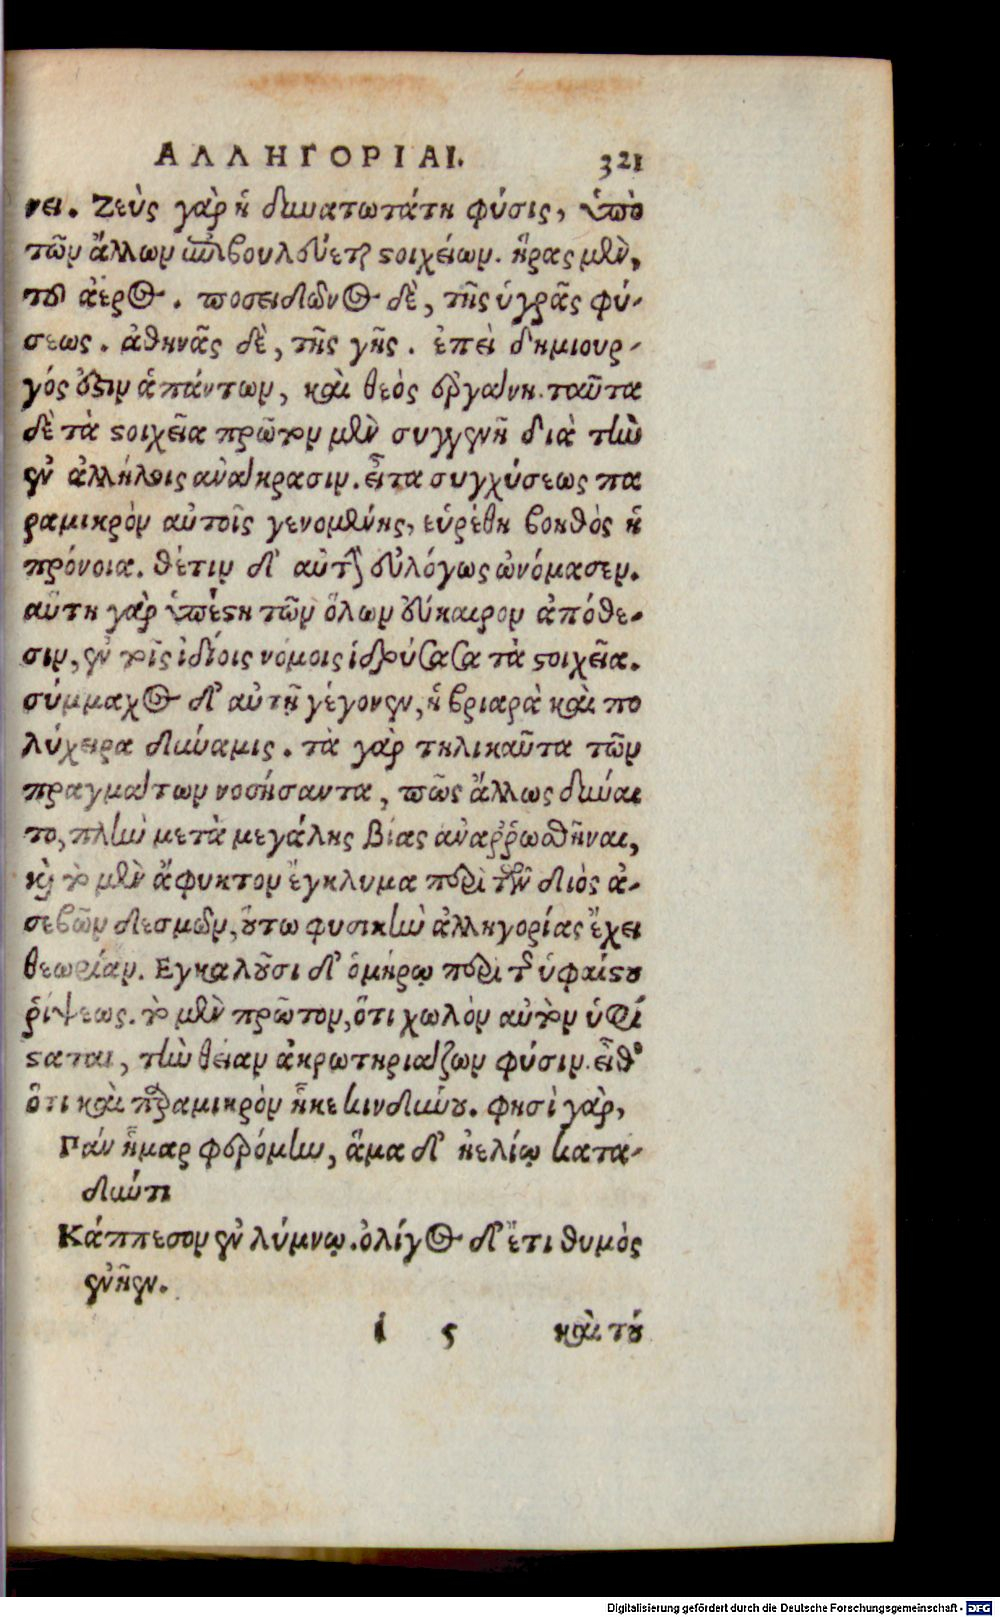 ΑΛΛΗΓΟΡΙΑΙ. 321
νει. Ζεὺς γὰρ ἡ δυνατωτάτη φύσις, ὑπὸ
τῶν ἄλλων ἐπιβουλεύεται στοιχείων. ἥρας μὲν,
τοῦ ἀέρος. ποσειδῶνος δὲ, τῆς ὑγρᾶς φύ-
σεως. ἀθηνᾶς δὲ, τῆς γῆς. ἐπεὶ δημιουρ-
γός ἐστιν ἁπάντων, καὶ θεὸς ἐργάνη. ταῦτα
δὲ τὰ στοιχεῖα πρῶτον μὲν συγγενῆ διὰ τὴν
ἐν ἀλλήλοις ἀνάκρασιν. εἶτα συγχύσεως πα
ραμικρὸν αὐτοῖς γενομένης, εὑρέθη βοηθὸς ἡ
πρόνοια. θέτιν δ' αὐτὴν εὐλόγως ὠνόμασεν.
αὕτη γὰρ ὑπέστη τῶν ὅλων εὔκαιρον ἀπόθε-
σιν, ἐν τοῖς ἰδίοις νόμοις ἱδρύσασα τὰ στοιχεῖα.
σύμμαχος δ' αὐτῇ γέγονεν, ἡ βριαρὰ καὶ πο
λύχειρα δύναμις. τὰ γὰρ τηλικαῦτα τῶν
πραγμάτων νοσήσαντα, πῶς ἄλλως δύναι
το, πλὴν μετὰ μεγάλης βίας ἀναῤῥωσθῆναι,
καὶ τὸ μὲν ἄφυκτον ἔγκλυμα περὶ τῶν διὸς ἀ-
σεβῶν δεσμῶν, οὕτω φυσικὴν ἀλληγορίας ἔχει
θεωρίαν. Εγκαλοῦσι δ' ὁμήρῳ περὶ τῆς ὑφαίστου
ῥίψεως. τὸ μὲν πρῶτον, ὅτι χωλὸν αὐτὸν ὑφί
σταται, τὴν θείαν ἀκρωτηριάζων φύσιν. εἶθ'
ὅτι καὶ παραμικρὸν ἧκε κινδύνου. φησὶ γὰρ,
Πάν ἦμαρ φερόμην, ἅμα δ' ἠελίῳ κατα-
δύντι
Κάππεσον ἐν λύμνῳ. ὀλίγος δ' ἔτι θυμὸς
ἐνῆεν.
i 5 καὶ τοῦ
Digitalisierung gefördert durch die Deutsche Forschungsgemeinschaft - DFG